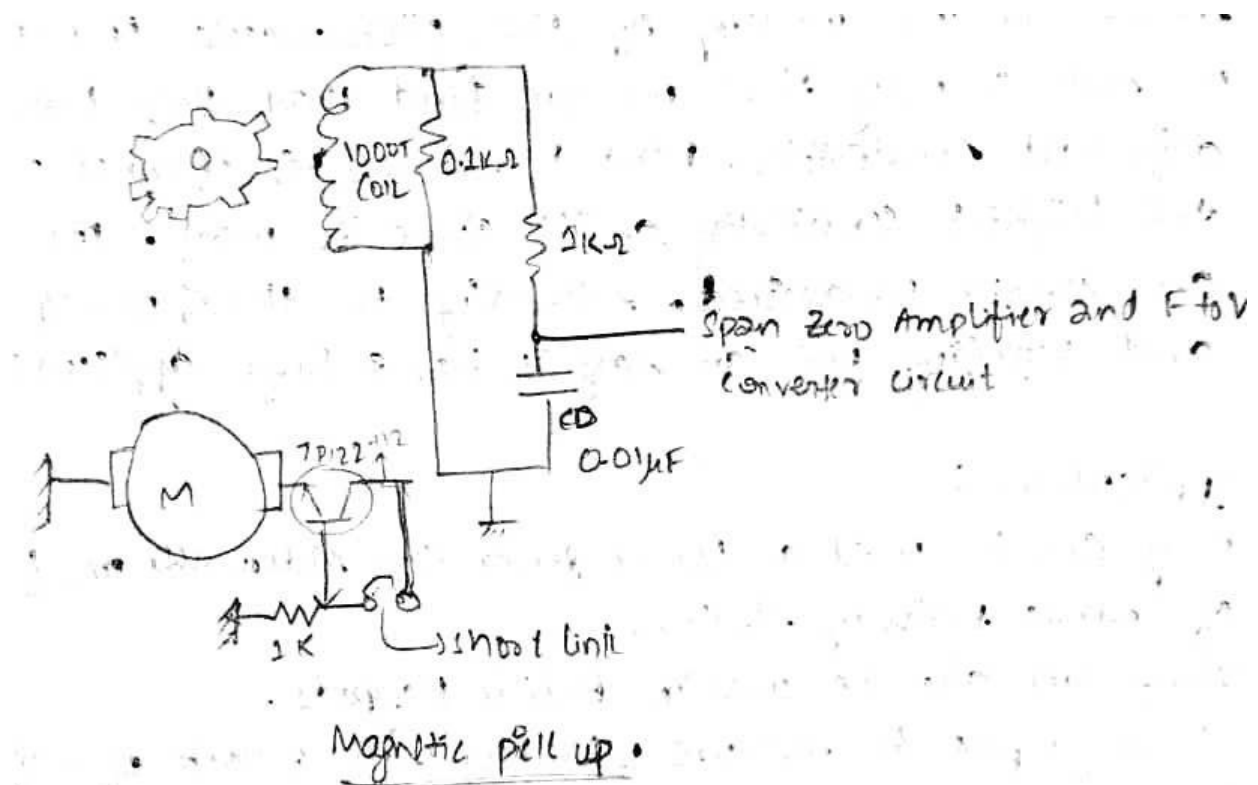 1000T
COIL
0.1KΩ
1KΩ
Span Zero Amplifier and F to V
Converter circuit
0.01µF
M
1K
short link
Magnetic pick up